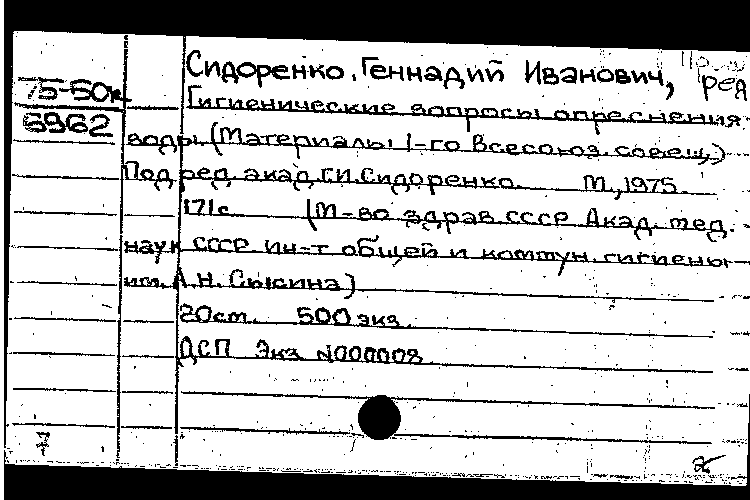 Сидоренко, Геннадий Иванович, ред
75-50к
6962
Гигиенические вопросы опреснения
воды. (Материалы I-го Всесоюз. совещ.)
Под ред. акад. Г.И. Сидоренко. М., 1975.
171с. (М-во здрав. СССР Акад. мед.
наук СССР ин-т общей и коммун. гигиены
им. А.Н. Сысина)
20см. 500 экз.
ДСП Экз N000008